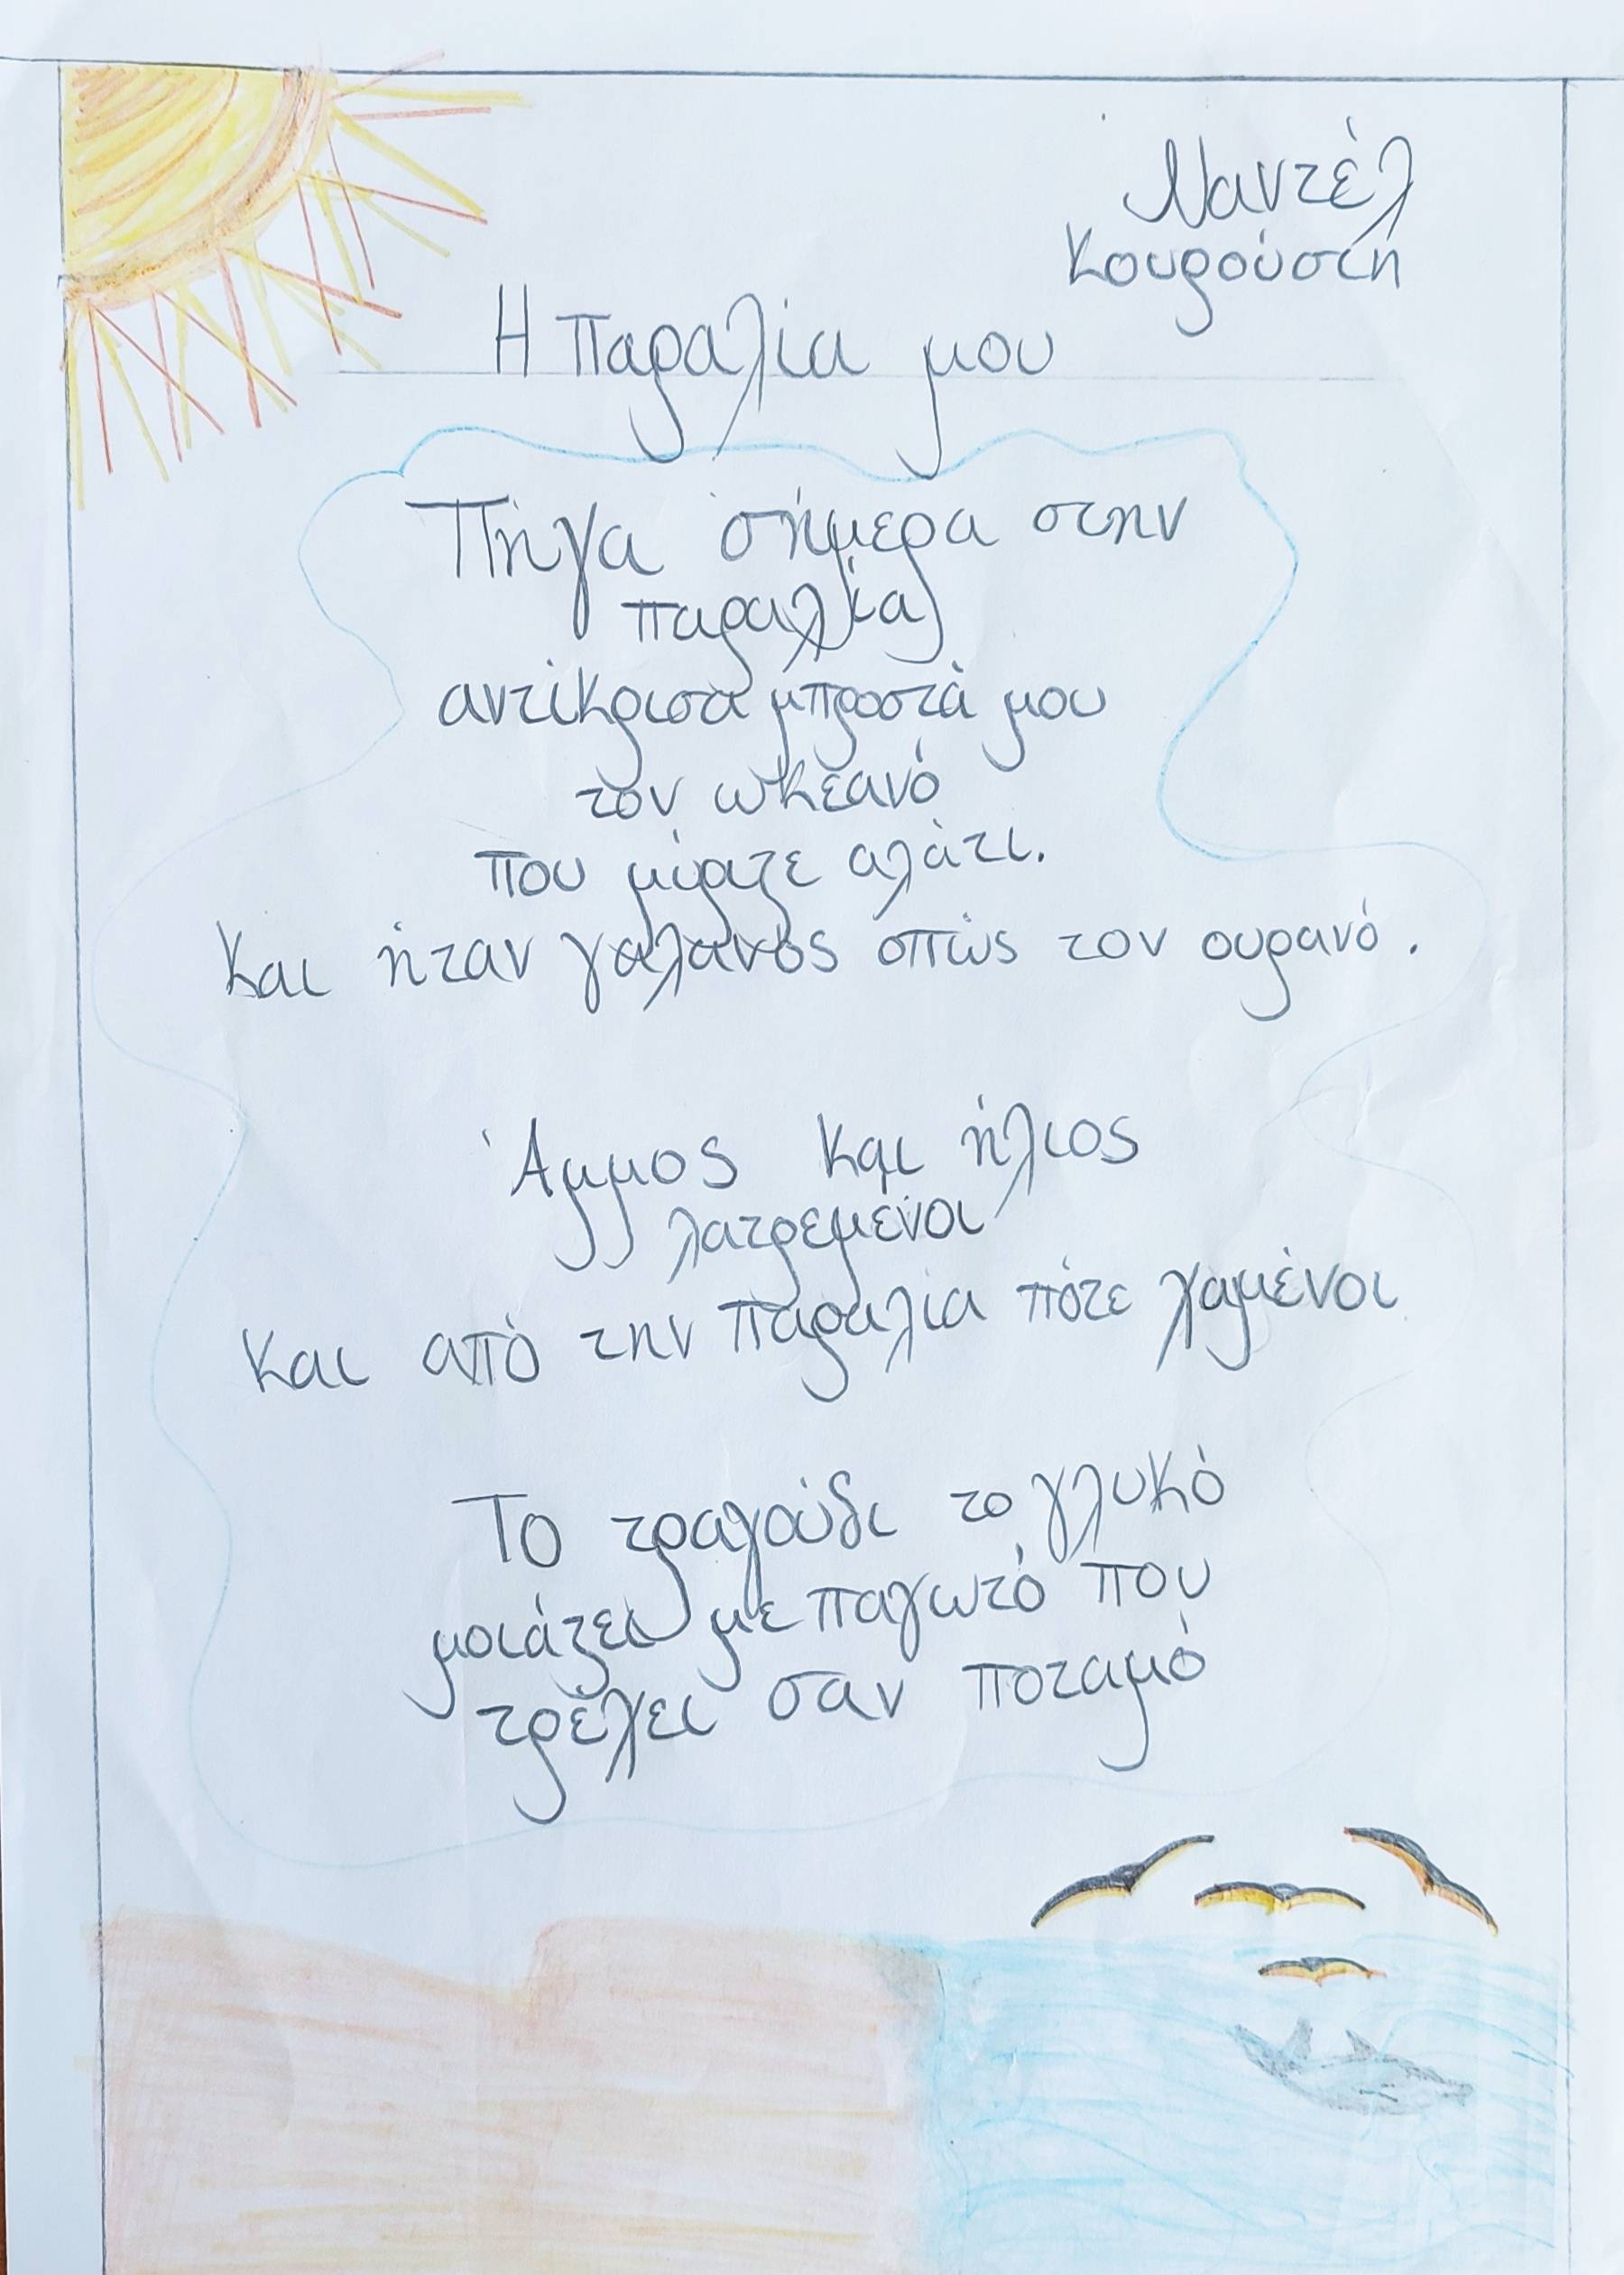 Ναντέλ
Κουρούση
Η παραλία μου
Πήγα σήμερα στην
παραλία
αντίκρισα μπροστά μου
τον ωκεανό
που μύριζε αλάτι.
Και ήταν γαλανός οπώς τον ουρανό.
Άμμος και ήλιος
λατρεμένοι
Και από την παραλία πότε χαμένοι
Το τραγούδι το γλυκό
μοιάζει με παγωτό που
τρέχει σαν ποταμό